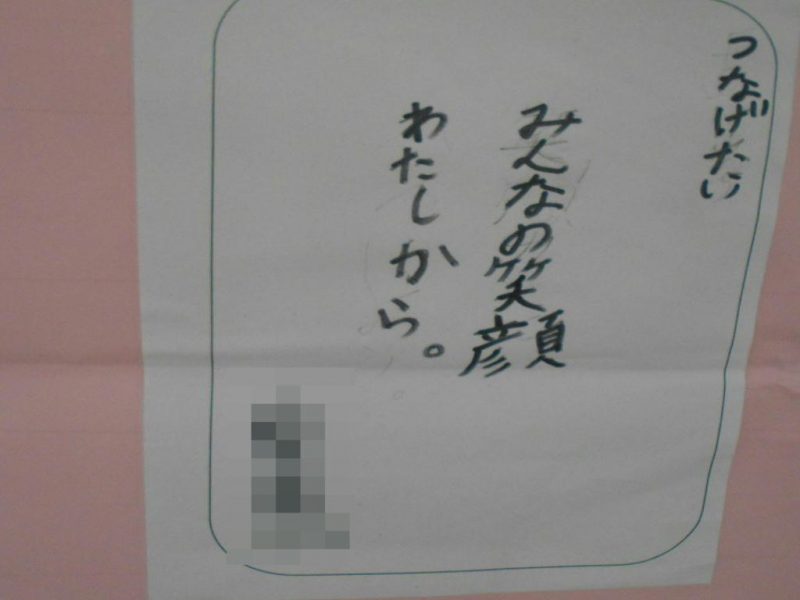 つなげたい
みんなの笑顔
わたしから。